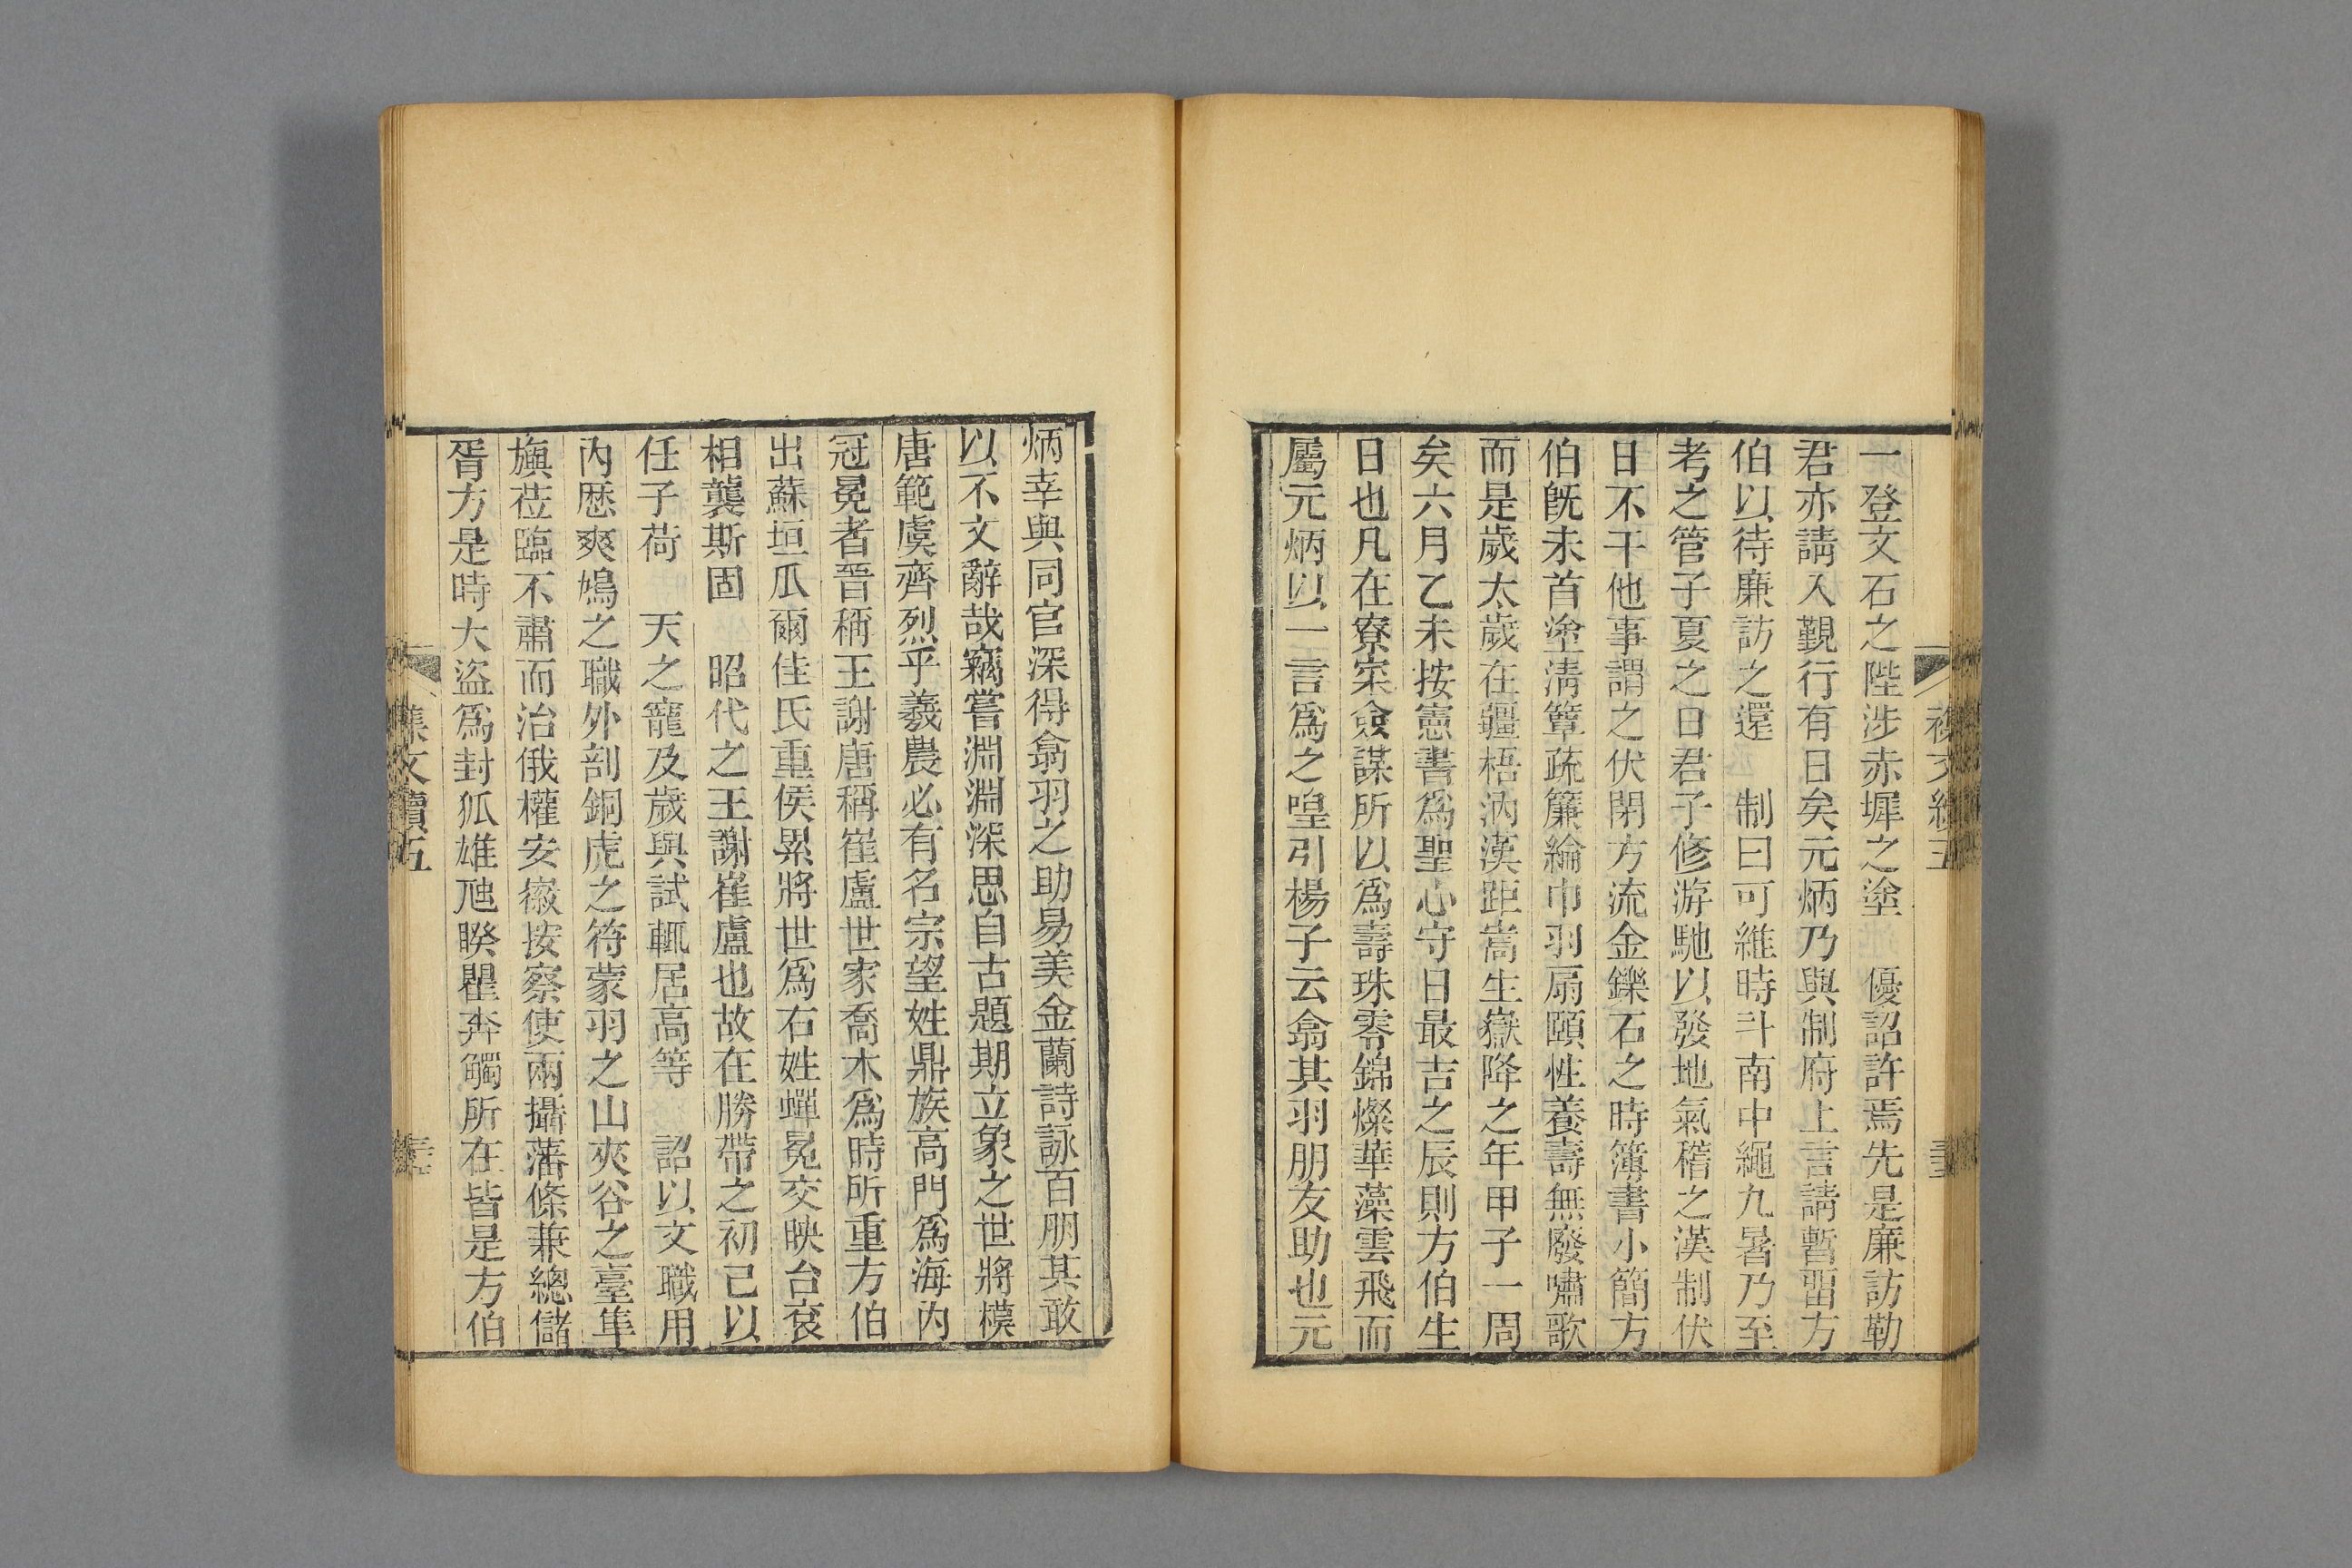 一登文石之陛涉赤墀之塗　優詔許焉先是廉訪勒
君亦請入覲行有日矣元炳乃與制府上言請暫畱方
伯以待廉訪之還　制曰可維時斗南中繩九晷乃至
考之管子夏之日君子修游馳以發地氣稽之漢制伏
日不干他事謂之伏閉方流金鑠石之時簿書小簡方
伯旣未首塗淸簟疏簾綸巾羽扇頤性養壽無廢嘯歌
而是歲太歲在疆梧汭漢距嵩生嶽降之年甲子一周
矣六月乙未按憲書爲聖心守日最吉之辰則方伯生
日也凡在寮寀僉謀所以爲壽珠零錦燦華藻雲飛而
屬元炳以一言爲之喤引楊子云翕其羽朋友助也元
炳幸與同官深得翕羽之助易美金蘭詩詠百朋其敢
以不文辭哉竊嘗淵淵深思自古題期立象之世將模
唐範虞齊烈乎羲農必有名宗望姓鼎族高門爲海內
冠冕者晉稱王謝唐稱崔盧世家喬木爲時所重方伯
出蘇垣瓜爾佳氏重侯累將世爲右姓蟬冕交映台袞
相襲斯固　昭代之王謝崔盧也故在勝帶之初已以
任子荷　天之寵及歲與試輒居高等　詔以文職用
內歷爽鳩之職外剖銅虎之符蒙羽之山夾谷之臺隼
旟莅臨不肅而治俄權安徽按察使兩攝藩條兼總儲
胥方是時大盜爲封狐雄虺睽瞿奔觸所在皆是方伯
集文續五